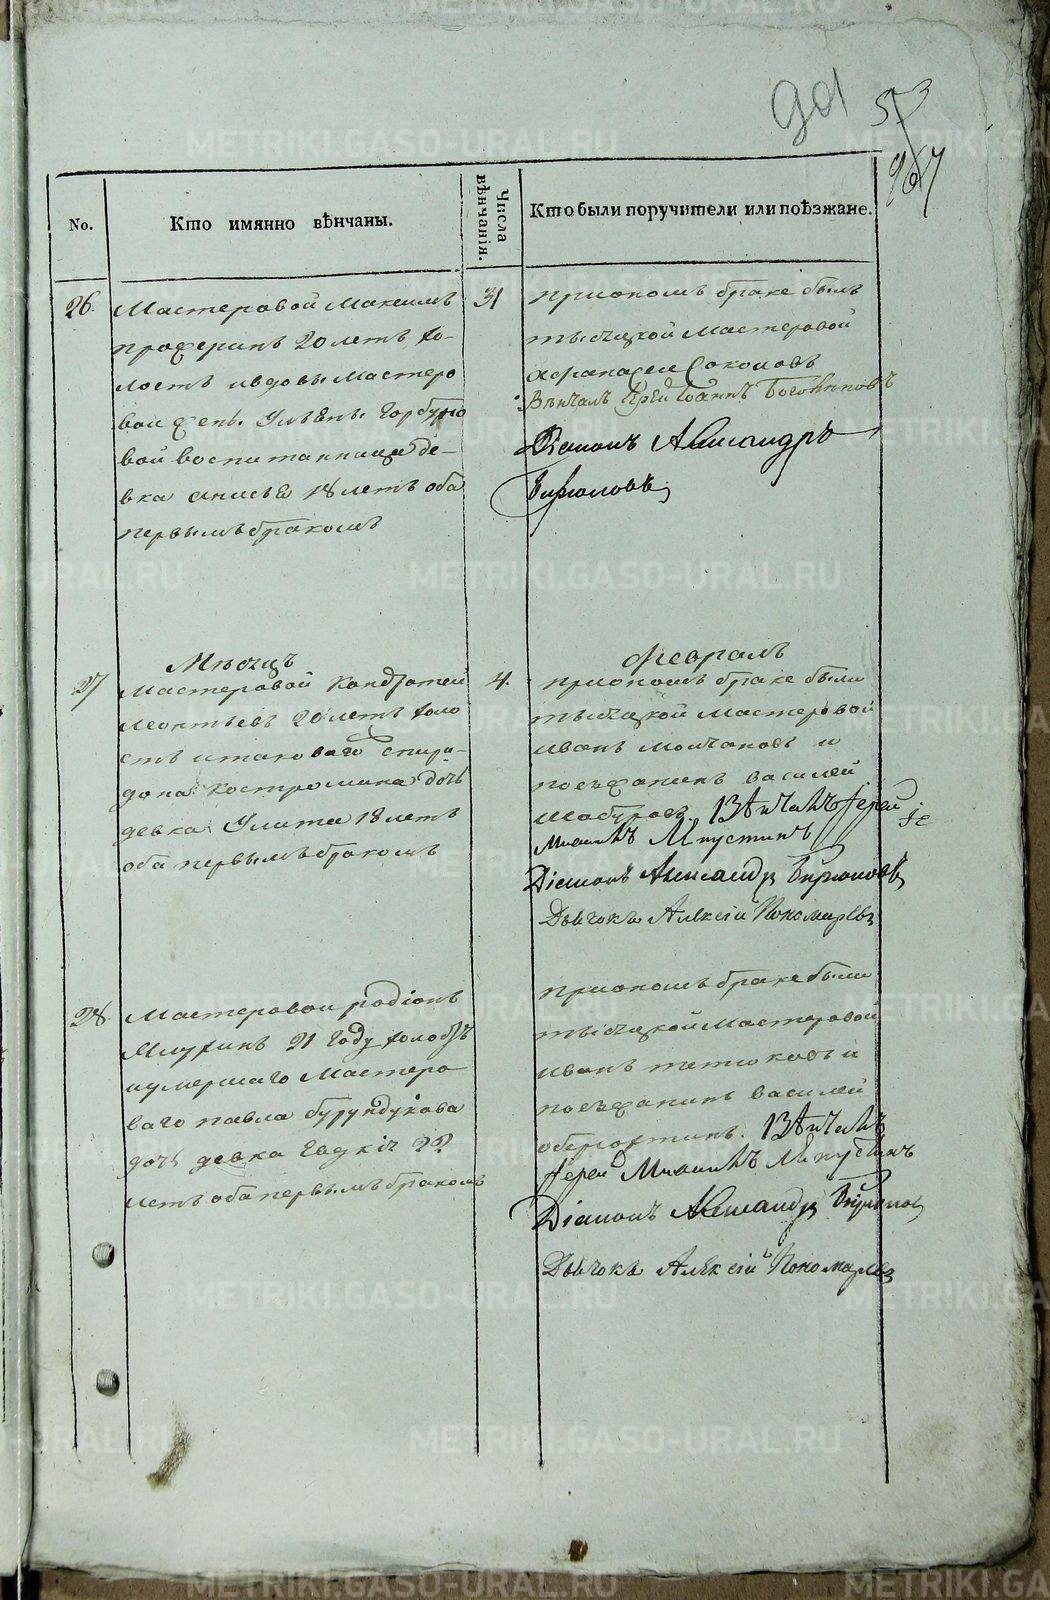 901
573
967
No.
Кто имянно вѣнчаны.
Числа вѣнчанія.
Кто были поручители или поѣзжане.
26.
Мастеровой Максимъ
20 летъ хо-
лостъ и вдовы мастеро
вой жены Ульяны Горбуно
вой воспитанница де-
вка Анисья 18 летъ оба
первымъ бракомъ
31
при ономъ браке былъ
тысяцкой мастеровой
Афанасей Соколовъ
Вѣнчалъ Іерей Іоаннъ
Діаконъ Александръ
Бирюковъ
Мѣсяцъ
Февраль
27
Мастеровой Кондратей
Леонтьевъ 20 летъ холо
стъ и таковаго Спири-
дона Костромина дочь
девка Улита 18 летъ
оба первымъ бракомъ
4.
при ономъ браке были
тысяцкой мастеровой
Иванъ Молчановъ и
поезжанинъ Василей
Вѣнчалъ Іерей
Діаконъ Александръ Бирюковъ
Дьячокъ Алексій Пономаревъ
28.
Мастеровой Родіонъ
21 году холостъ
и умершаго мастеро
ваго Павла Бурундукова
дочь девка 22
летъ оба первымъ бракомъ
при ономъ браке были
тысяцкой мастеровой
Иванъ и
поезжанинъ Василей
Вѣнчалъ
Іерей
Діаконъ Александръ Бирюковъ
Дьячокъ Алексій Пономаревъ
METRIKI.GASO-URAL.RU